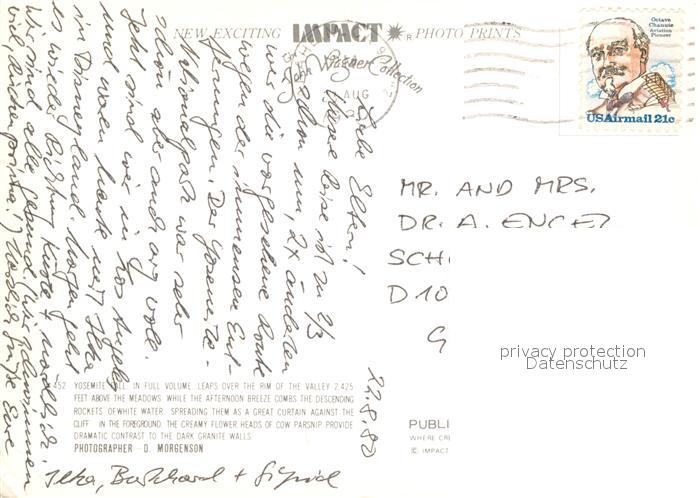 NEW EXCITING IMPACT ® PHOTO PRINTS
John Wagner Collection
AUG
Octave
Chanute
Aviation
Pioneer
USAirmail 21c
Liebe Eltern!
Unsere Reise ist zu 2/3
um, 2x änderten
wir die vorgesehene Route
wegen der immensen Ent-
fernungen. Der Yosemite-
Nationalpark war sehr
schön, aber auch arg voll.
Jetzt sind wir in Los Angeles
und waren heute mit Ilka
in Disneyland. Morgen geht
es wieder Richtung Küste + nördlich.
Wir sind alle gesund (wir schwimmen
viel, Ilka prima!) Herzliche Grüße Eure
Ilka, Burkhard + Sigrid
22.8.80
MR. AND MRS.
DR. A. ENGE
SCH
D 10
G
privacy protection
Datenschutz
452 YOSEMITE FALL IN FULL VOLUME LEAPS OVER THE RIM OF THE VALLEY 2,425
FEET ABOVE THE MEADOWS. WHILE THE AFTERNOON BREEZE COMBS THE DESCENDING
ROCKETS OF WHITE WATER. SPREADING THEM AS A GREAT CURTAIN AGAINST THE
CLIFF IN THE FOREGROUND. THE CREAMY FLOWER HEADS OF COW PARSNIP PROVIDE
DRAMATIC CONTRAST TO THE DARK GRANITE WALLS.
PHOTOGRAPHER D. MORGENSON
PUBLI
WHERE CRE
© IMPACT